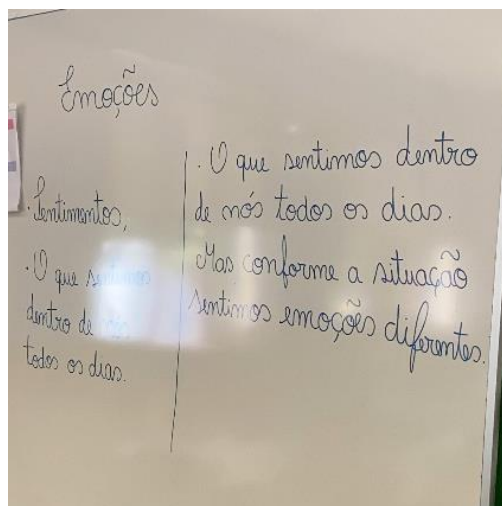 Emoções
· Sentimentos,
· O que sentimos
dentro de nós
todos os dias.
· O que sentimos dentro
de nós todos os dias.
Mas conforme a situação
sentimos emoções diferentes.